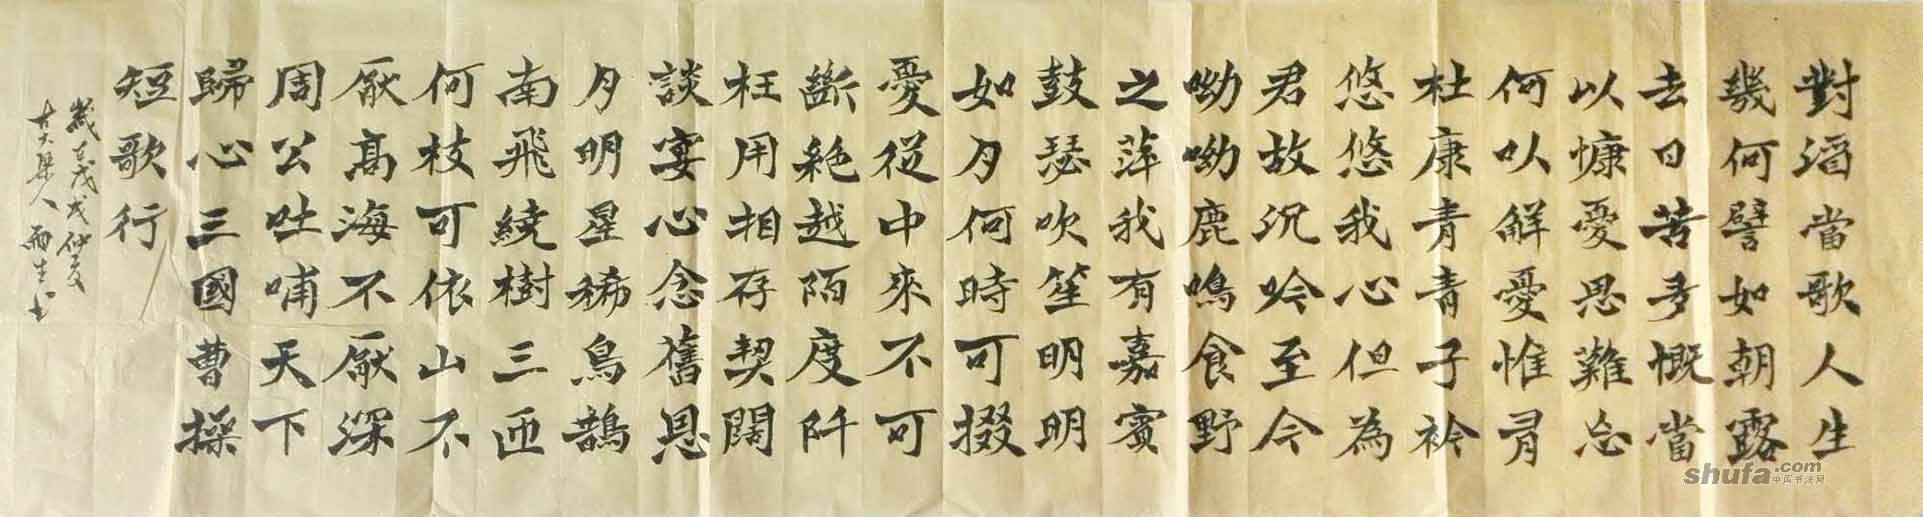 對酒當歌人生
幾何譬如朝露
去日苦多慨當
以慷憂思難忘
何以解憂惟有
杜康青青子衿
悠悠我心但為
君故沉吟至今
呦呦鹿鳴食野
之萍我有嘉賓
鼓瑟吹笙明明
如月何時可掇
憂從中來不可
斷絕越陌度阡
枉用相存契闊
談宴心念舊恩
月明星稀鳥鵲
南飛繞樹三匝
何枝可依山不
厭高海不厭深
周公吐哺天下
歸心三國曹操
短歌行
歲在戊戌仲夏
古大梁人雨生书
shufa.com
中国书法网